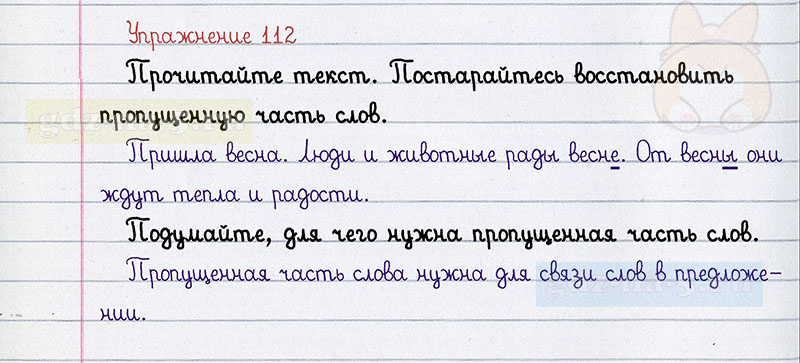 Упражнение 112
Прочитайте текст. Постарайтесь восстановить
пропущенную часть слов.
Пришла весна. Люди и животные рады весне. От весны они
ждут тепла и радости.
Подумайте, для чего нужна пропущенная часть слов.
Пропущенная часть слова нужна для связи слов в предложе-
нии.